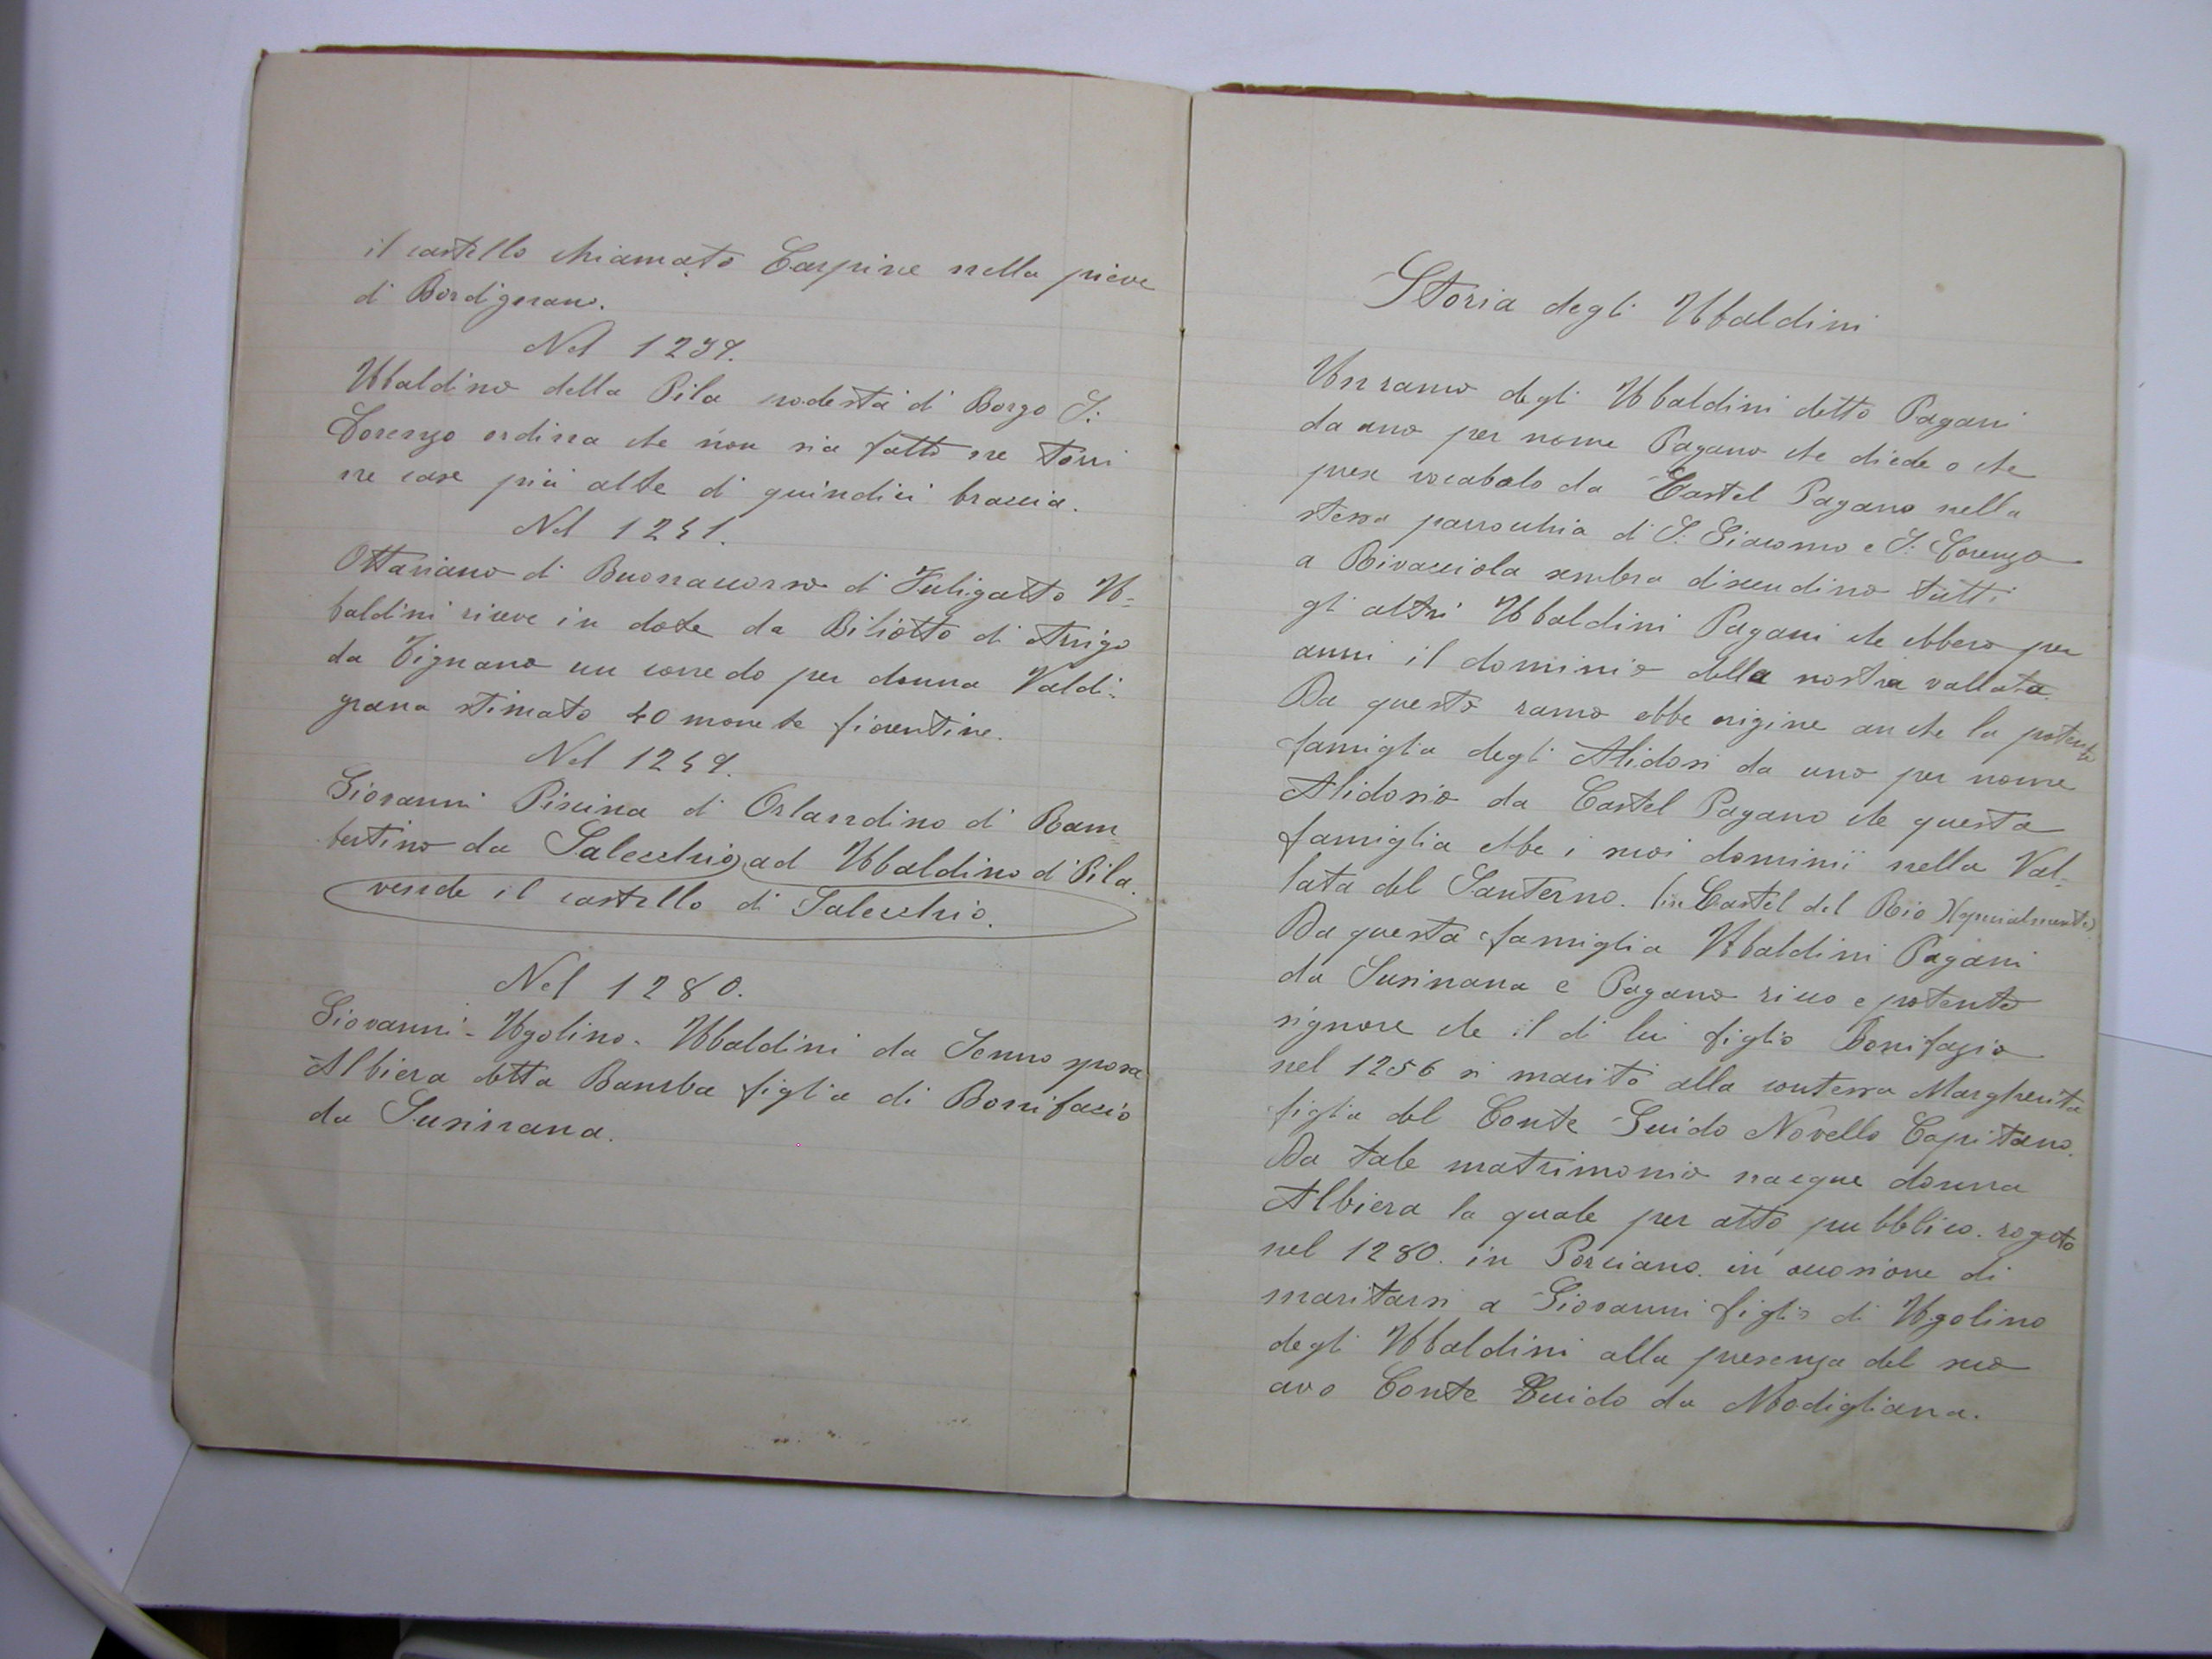 il castello chiamato Carpine nella pieve
di Bordignano.
Nel 1239.
Ubaldino della Pila podestà di Borgo S.
Lorenzo ordina che non sia fatto ne torri
ne case più alte di quindici braccia.
Nel 1241.
Ottaviano di Buonaccorso di Fuligatto U=
baldini riceve in dote da Biliotto di Arrigo
da Vignano un corredo per donna Valdi-
grana stimato 40 monete fiorentine.
Nel 1249.
Giovanni Piscina di Orlandino di Bam
bertino da Salecchio ad Ubaldino d' Pila.
vende il castello di Salecchio.
Nel 1280.
Giovanni - Ugolino - Ubaldini da Senno sposa
Albiera detta Bamba figlia di Bonifacio
da Susinana.
Storia degli Ubaldini
Un ramo degli Ubaldini detto Pagani
da uno per nome Pagano che diede o che
prese vocabolo da Castel Pagano nella
stessa parrocchia di S. Giacomo e S. Lorenzo
a Rivacciola sembra discendino tutti
gli altri Ubaldini Pagani che ebbero per
anni il dominio della nostra vallata.
Da questo ramo ebbe origine anche la potente
famiglia degli Alidosi da uno per nome
Alidosio da Castel Pagano che questa
famiglia ebbe i suoi dominii nella Val=
lata del Santerno. (in Castel del Rio)(specialmente)
Da questa famiglia Ubaldini Pagani
da Susinana e Pagano ricco e potente
signore che il di lui figlio Bonifazio
nel 1256 si maritò alla contessa Margherita
figlia del Conte Guido Novello Capitano.
Da tale matrimonio nacque donna
Albiera la quale per atto pubblico. rogato
nel 1280. in Porciano. in occasione di
maritarsi a Giovanni figlio di Ugolino
degli Ubaldini alla presenza del suo
avo Conte Guido da Modigliana.